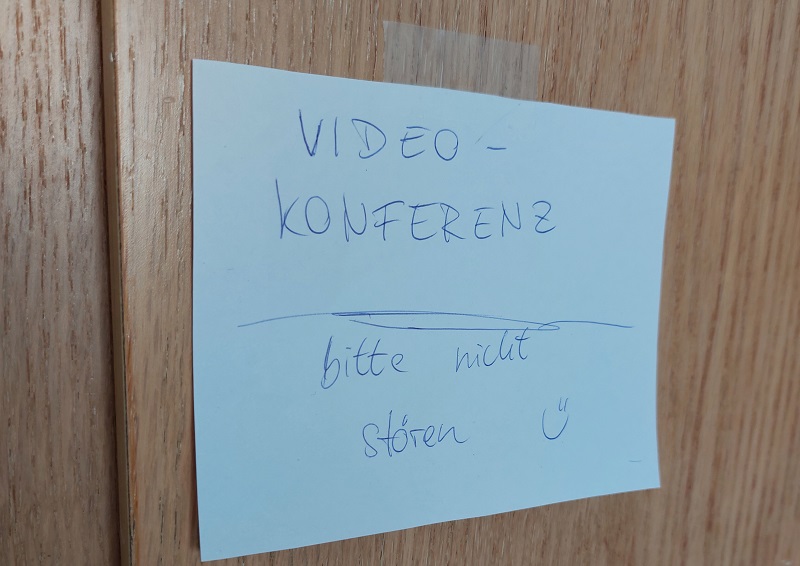 VIDEO -
KONFERENZ
bitte nicht
stören Ü